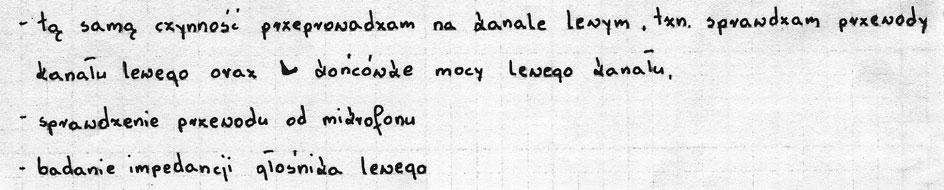 - tą samą czynność przeprowadzam na kanale lewym, tzn. sprawdzam przewody
kanału lewego oraz końcówkę mocy lewego kanału,
- sprawdzenie przewodu od mikrofonu
- badanie impedancji głośnika lewego